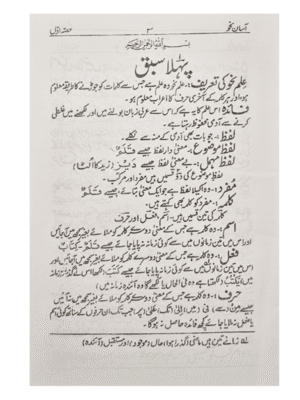 آسان نحو ۳ حصہ اوّل
بسم اللہ الرحمٰن الرحیم
پہلا سبق
علم نحو کی تعریف: علم نحو وہ علم ہے جس سے کلمات کو جوڑنے کا طریقہ معلوم
ہو، اور ہر کلمے کے آخری حرف کا اعراب معلوم ہو۔
فائدہ: اس علم کا یہ ہے کہ اس سے عربی زبان بولنے میں اور لکھنے میں غلطی
کرنے سے آدمی محفوظ رہتا ہے۔
لفظ: جو بات بھی آدمی کے منہ سے نکلے۔
لفظ موضوع: معنی دار لفظ جیسے قَلَمٌ
لفظ مہمل: بے معنی لفظ جیسے دَیْزٌ (زید کا الٹا)
لفظ موضوع کی دو قسمیں ہیں مفرد اور مرکب۔
مفرد: وہ اکیلا لفظ ہے جو ایک معنی بتائے، جیسے قَلَمٌ
مفرد کو کلمہ بھی کہتے ہیں۔
کلمہ کی تین قسمیں ہیں۔ اسم، فعل اور حرف
اسم: وہ کلمہ ہے جس کے معنی دوسرے کلمہ کو ملائے بغیر سمجھ میں آجائیں
اور اس میں تین زمانوں میں سے کوئی زمانہ نہ پایا جائے جیسے قَلَمٌ، کِتَابٌ
فعل: وہ کلمہ ہے جس کے معنی دوسرے کلمے کو ملائے بغیر سمجھ میں آجائیں اور
اس میں تین زمانوں میں سے کوئی زمانہ پایا جائے جیسے کَتَبَ (لکھا اس نے گذشتہ زمانہ
میں) یَکْتُبُ (لکھتا ہے وہ فی الحال یا لکھے گا وہ آئندہ زمانہ میں)
حرف: وہ کلمہ ہے جس کے معنی دوسرے کلمہ کو ملائے بغیر سمجھ میں نہ آئیں
جیسے مِنْ (سے) فِیْ (میں) اِلٰی (تک) عَلٰی (پر) جب تک ان حرفوں کے ساتھ کوئی اسم
یا فعل نہ ملایا جائے کچھ فائدہ حاصل نہ ہوگا۔
لہ زمانے تین ہیں ماضی (گذرا ہوا) حال (موجودہ) اور مستقبل (آئندہ)